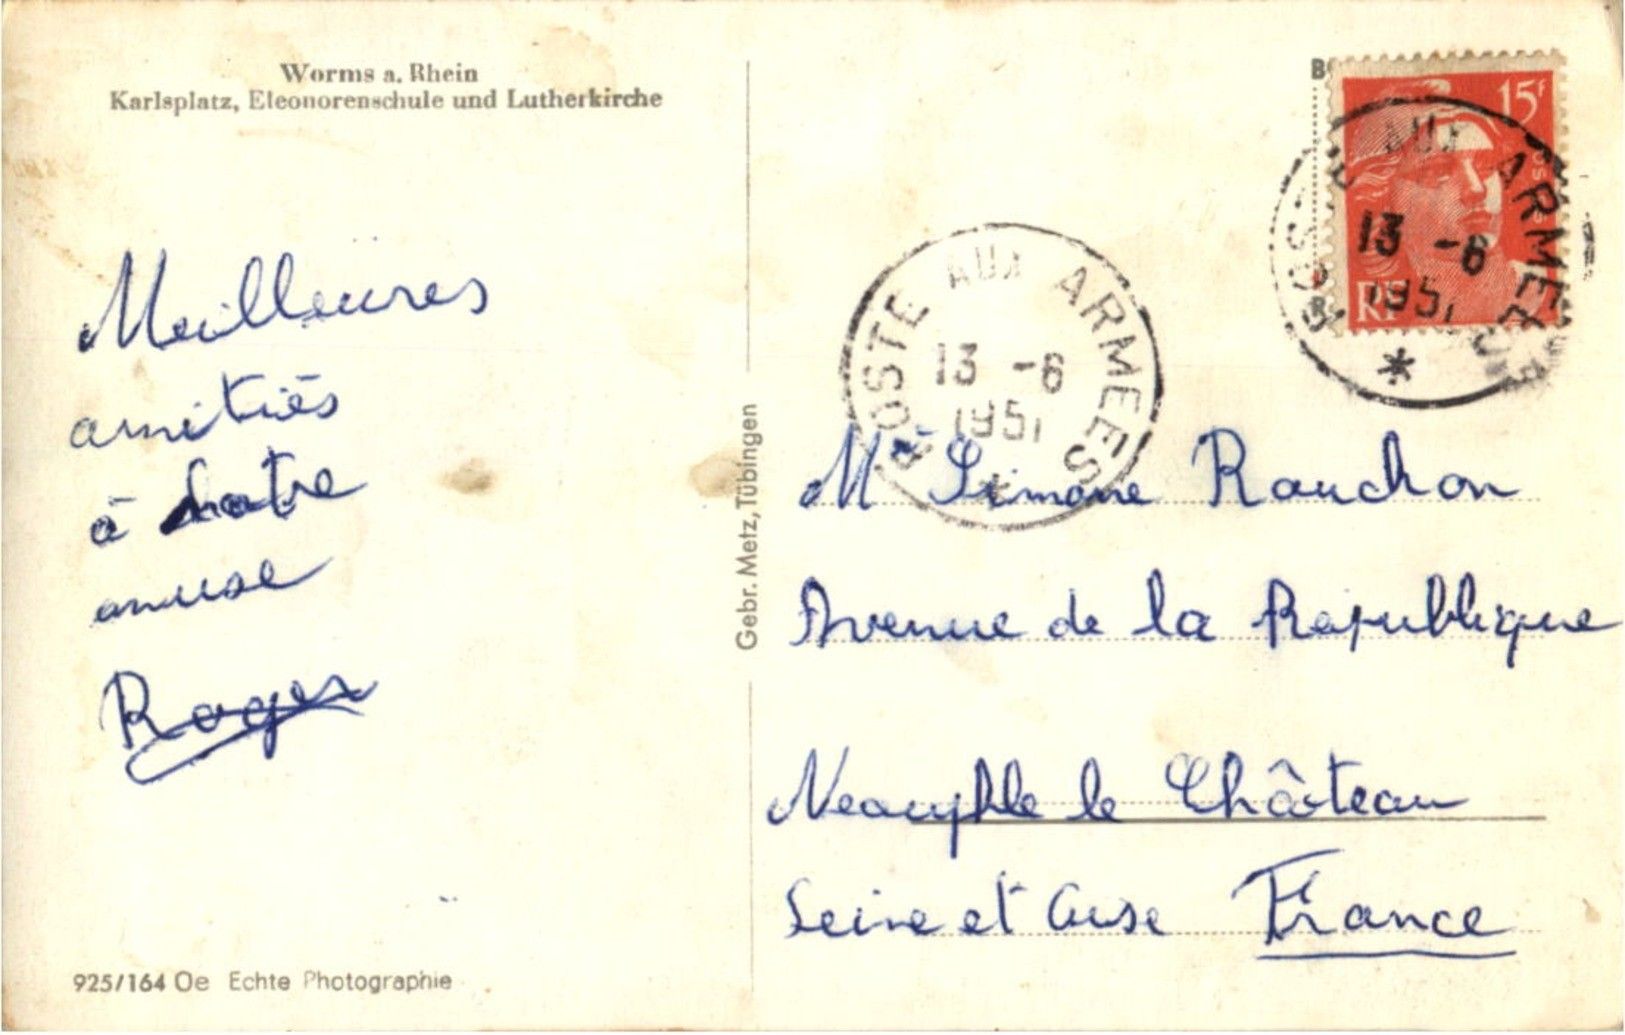 Worms a. Rhein
Karlsplatz, Eleonorenschule und Lutherkirche
Meilleures
amitiés
à
amuse
Roger
Gebr. Metz, Tübingen
925/164 Oe Echte Photographie
15F
RF
POSTE AUX ARMEES
13 -6
1951
POSTE AUX ARMEES
13 -6
1951
*
Simone Rauchon
Avenue de la République
Neauphle le Château
Seine et Oise France